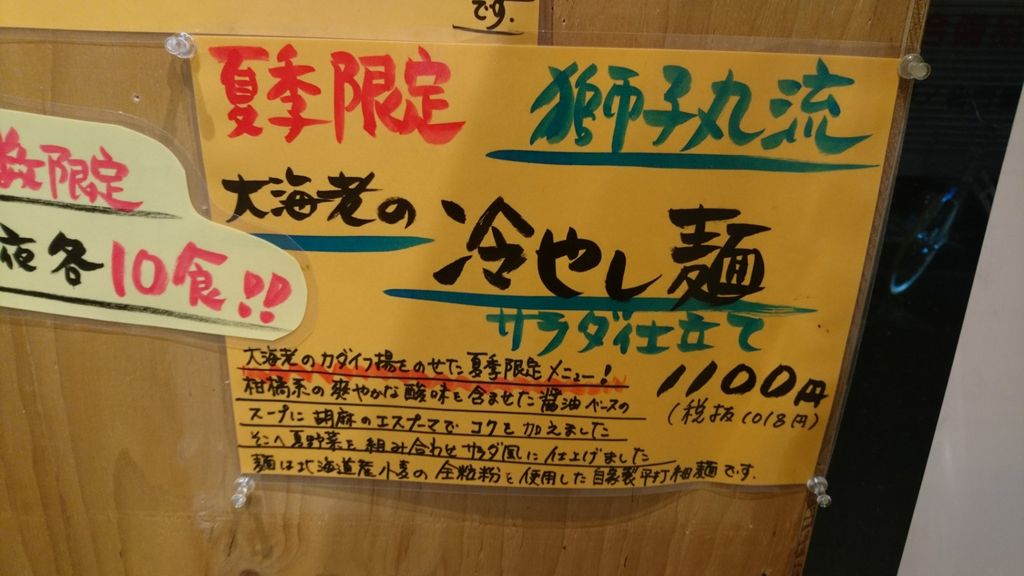 です.
夏季限定 獅子丸流
大海老の
冷やし麺
サラダ仕立て
大海老のカダイフ揚をのせた夏季限定メニュー!
柑橘系の爽やかな酸味を含ませた醤油ベースの
スープに胡麻のエスプーマでコクを加えました
そこへ夏野菜を組み合わせサラダ風に仕上げました
麺は北海道産小麦の全粒粉を使用した自家製平打細麺です.
1100円
(税抜1018円)
数限定
夜各10食!!